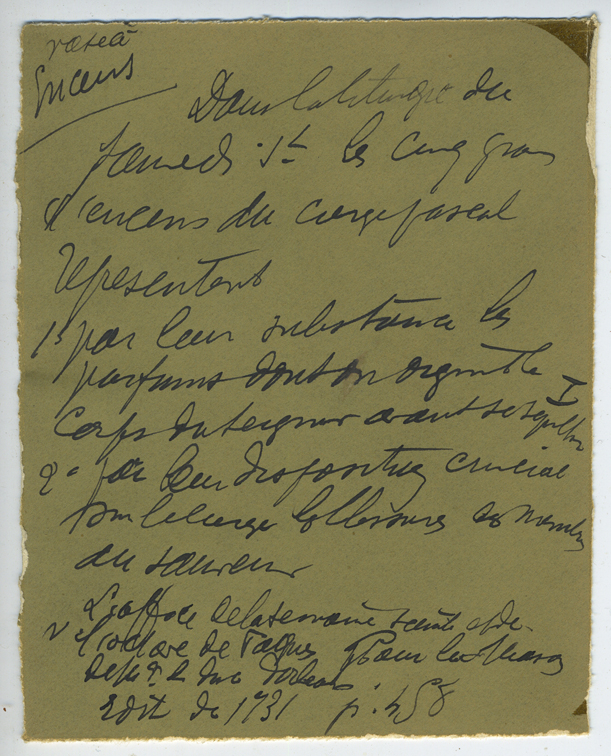 Encens
Dans la liturgie du
Samedi St les cinq grains
d'encens du cierge pascal
représentent
1° par leur substance les
parfums dont on oignit le
Corps du Seigneur avant sa sépulture
2° par leur disposition crucial
sur le cierge les blessures des membres
du sauveur
L'office de la semaine sainte et de
v l'octave de Pâques Pour la Maison
de Mgr le duc d'Orleans
Edit de 1731 p. 458